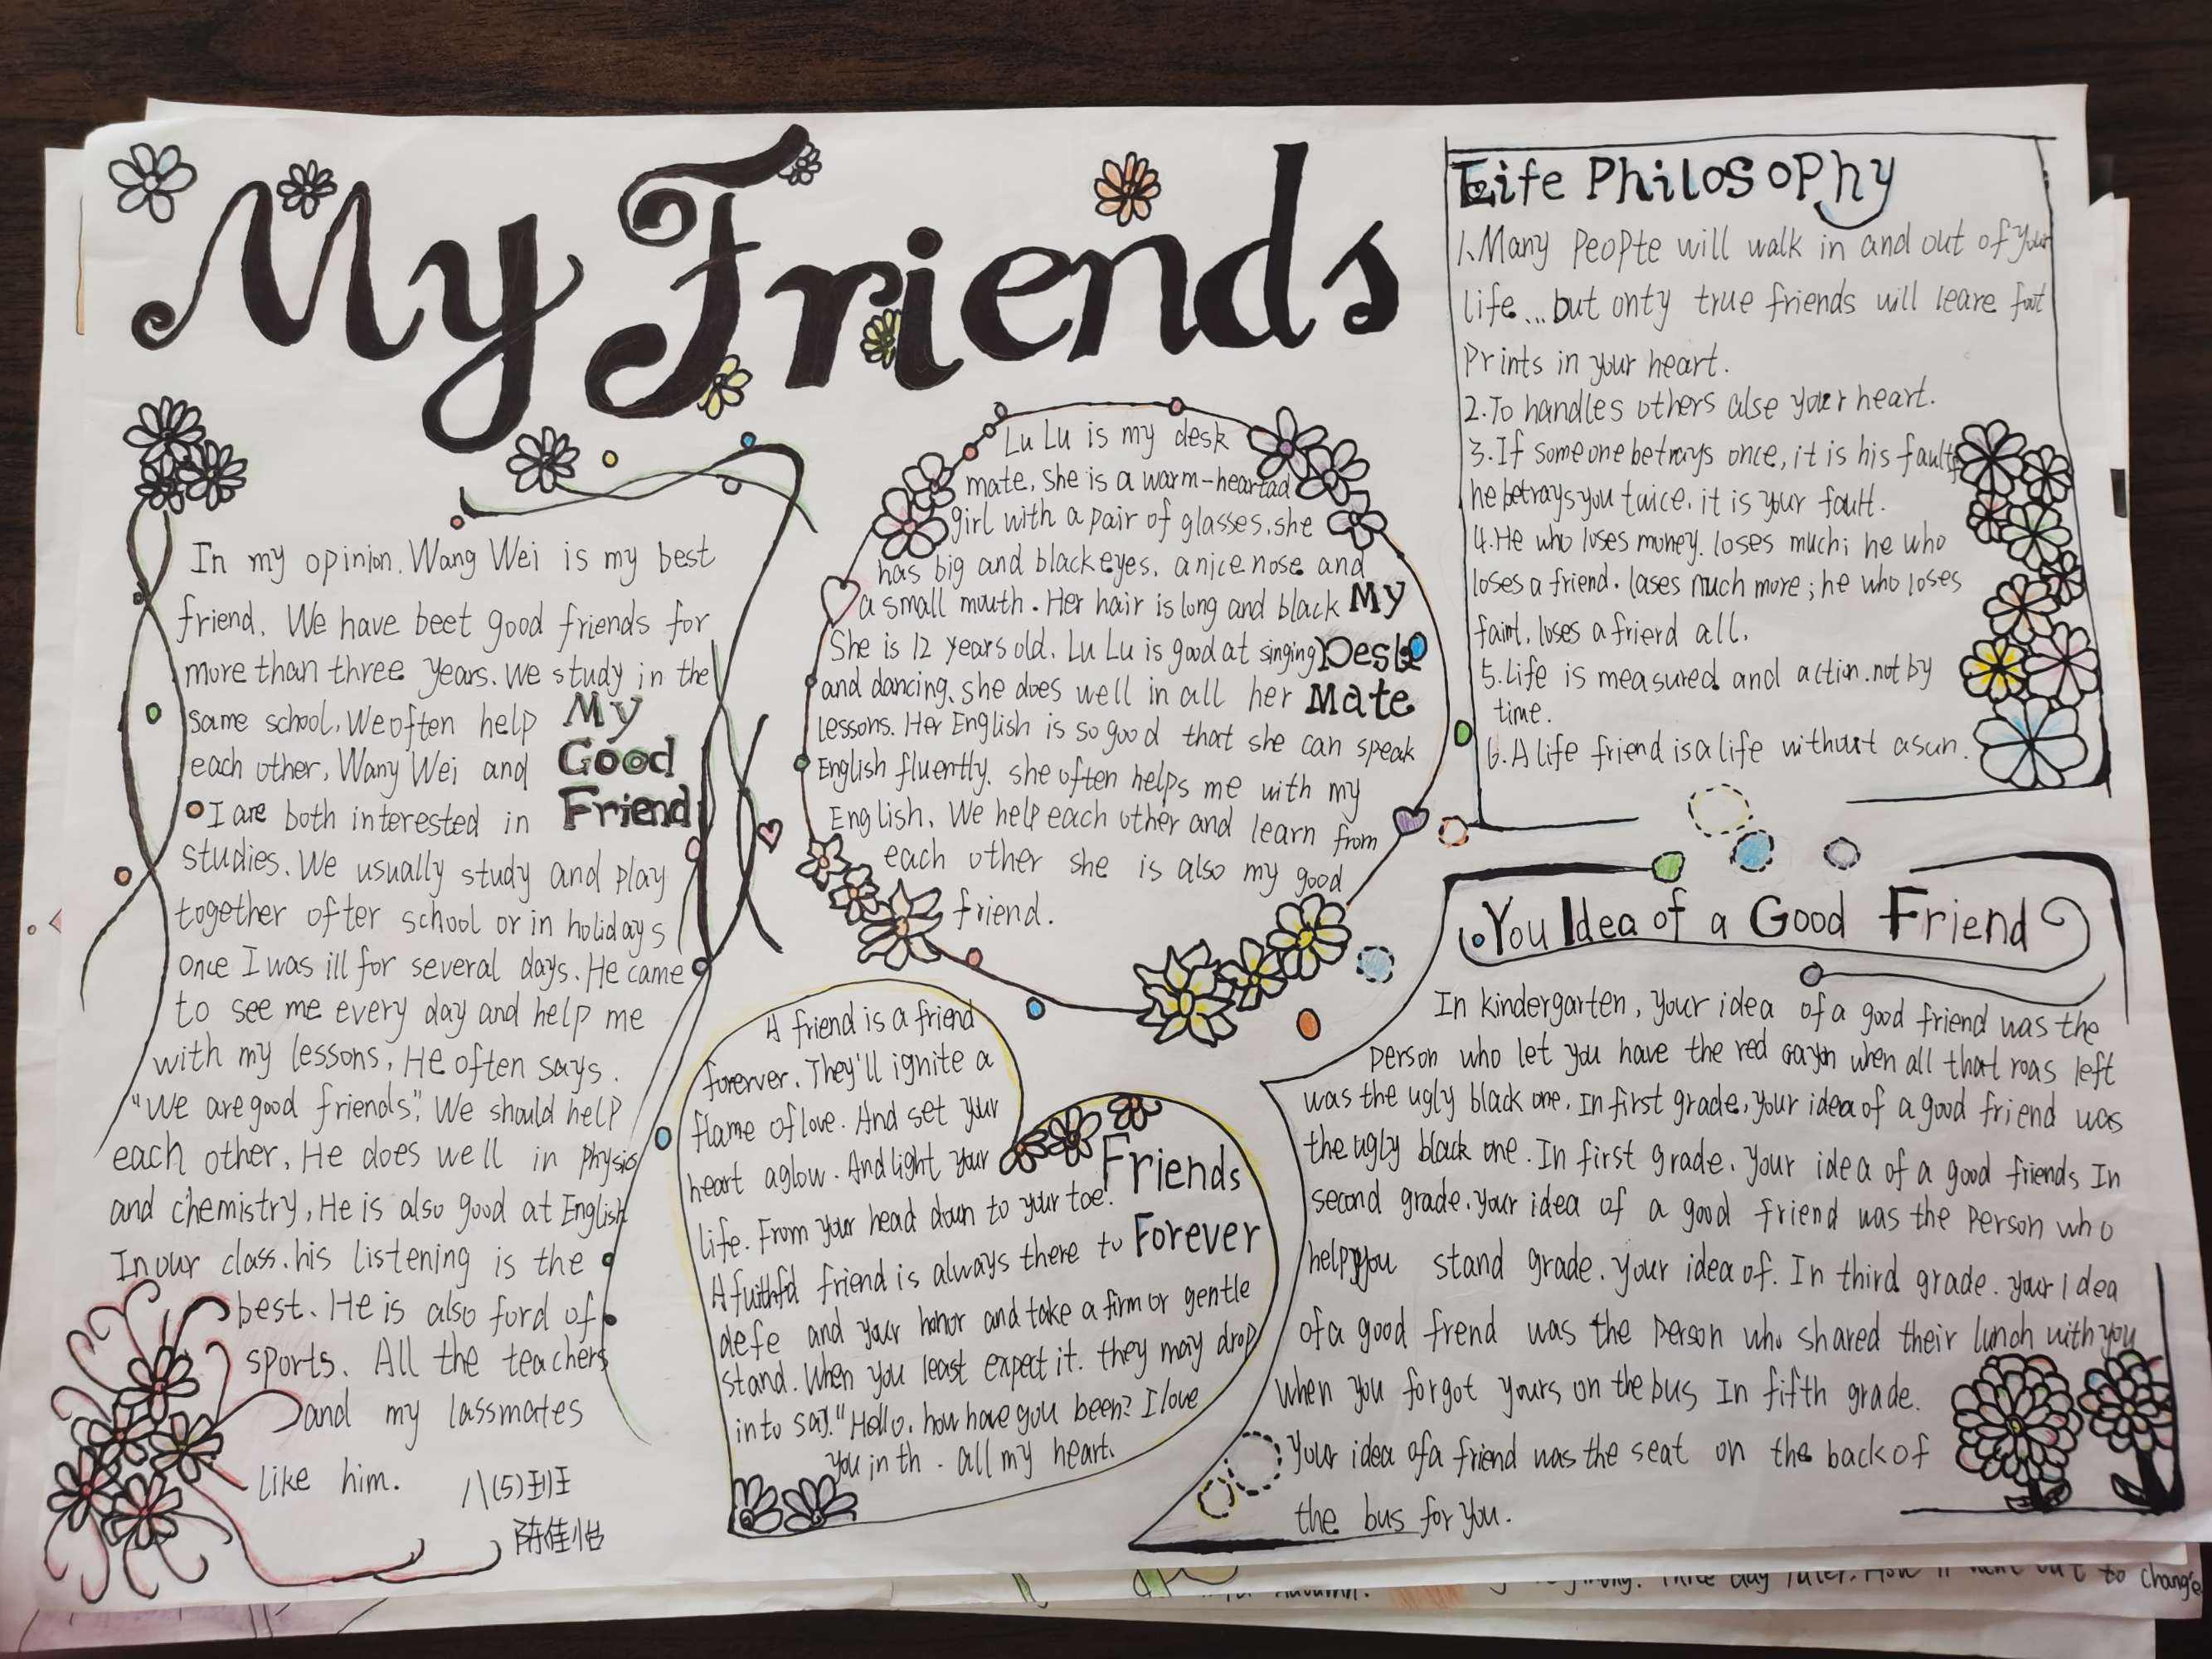 My Friends
In my opinion. Wang Wei is my best
friend. We have beet good friends for
more than three years. We study in the
same school, We often help
each other, Wany Wei and
I are both interested in
studies. We usually study and play
together ofter school or in holidays
once I was ill for several days. He came
to see me every day and help me
with my lessons, He often says.
"We are good friends", We should help
each other, He does well in Physis
and chemistry, He is also good at English
In our class. his listening is the
best. He is also ford of
sports. All the teachers
and my lassmates
like him.
My
Good
Friend
八(5)班
陈佳怡
Lu Lu is my desk
mate, She is a warm-heartad
girl with a pair of glasses, she
has big and black eyes, a nice nose and
a small mouth. Her hair is long and black
She is 12 years old. Lu Lu is good at singing
and dancing, she does well in all her
lessons. Her English is so good that she can speak
English fluently. she often helps me with my
English. We help each other and learn from
each other she is also my good
friend.
My
Desk
Mate
A friend is a friend
forerver. They'll ignite a
flame of love. And set your
heart aglow. And light your
life. From your head down to your toe!
A friend is always there to
defe and your honor and take a firm or gentle
stand. When you least expect it. they may drop
into say." Hello, how have you been? I love
you in th. all my heart.
Friends
Forever
Life Philosophy
1. Many Peopte will walk in and out of your
life... but onty true friends will leare
Prints in your heart.
2. To handles others alse your heart.
3. If someone betrays once, it is his fault
he betrays you twice. it is your foutt.
4. He who loses money. loses much; he who
loses a friend. lases much more; he who loses
faint, loses a frierd all.
5. Life is measured and action. not by
time.
6. A life friend is a life without a sun.
You Idea of a Good Friend
In kindergarten, your idea of a good friend was the
Person who let you have the red when all that roas left
was the ugly black one. In first grade, your idea of a good friend was
the ugly black one. In first grade. your idea of a good friends In
second grade. your idea of a good friend was the Person who
help you stand grade. your idea of. In third grade. your Idea
of a good frend was the Person who shared their lunch with you
when you forgot yours on the bus In fifth grade.
Your idea of a friend was the seat on the back of
the bus for you.
out to change